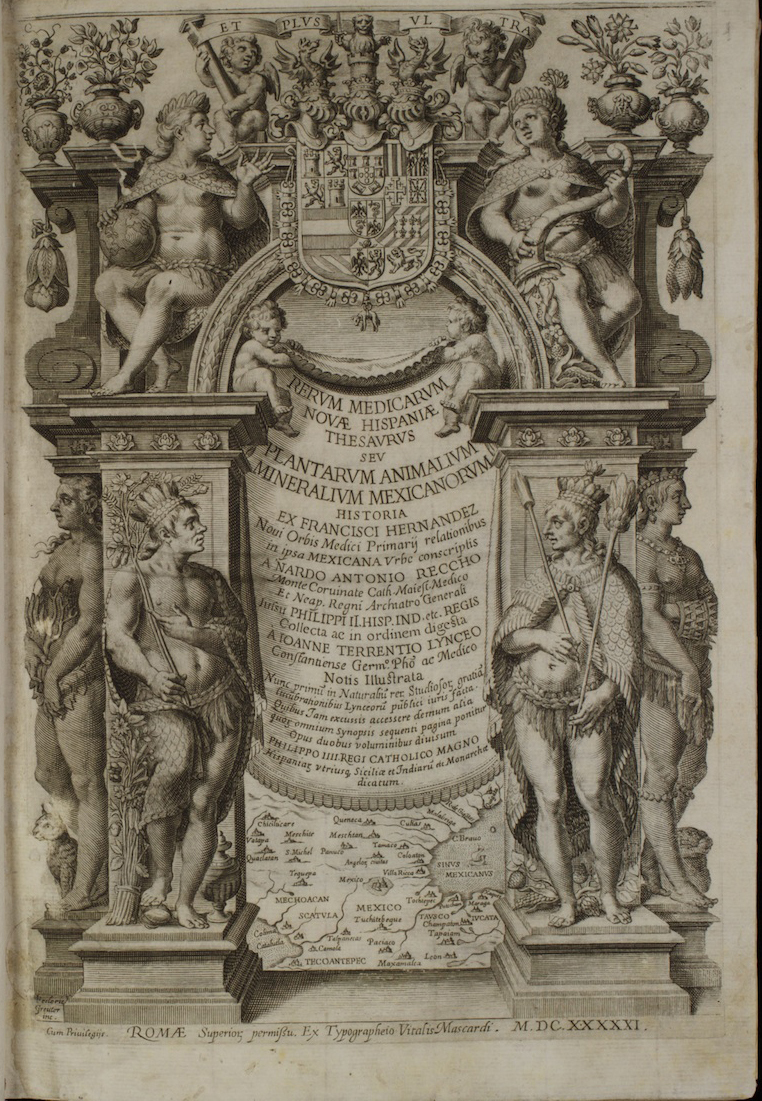 ET PLVS VL TRA
RERVM MEDICARVM
NOVÆ HISPANIÆ
THESAVRVS
SEV
PLANTARVM ANIMALIVM
MINERALIVM MEXICANORVM
HISTORIA
EX FRANCISCI HERNANDEZ
Noui Orbis Medici Primarij relationibus
in ipsa MEXICANA Vrbe conscriptis
A NARDO ANTONIO RECCHO
Monte Coruinate Cath. Maiest. Medico
Et Neap. Regni Archiatro Generali
Iussu PHILIPPI II. HISP. IND. etc. REGIS
Collecta ac in ordinem digesta
A IOANNE TERRENTIO LYNCEO
Constantiense Germ.º Phõ ac Medico
Notis Illustrata
Nunc primũ in Naturaliũ rer. Studiosor. gratiã
lucubrationibus Lynceorũ publici iuris facta.
Quibus Jam excussis accessere demum alia
quor. omnium Synopsis sequenti pagina ponitur
Opus duobus voluminibus diuisum
PHILIPPO IIII. REGI CATHOLICO MAGNO
Hispaniar. vtriusq. Siciliæ et Indiarũ etc. Monarchæ
dicatum.
Chicilucare Queneca Culias
C. Brauo
Votopa Mechite Meschtan
Quaclatan S. Michel Panuco Tamaco
Angelor. ciuitas Coloatin
SINUS
MEXICANVS
Yequepa Mexico Villa Ricca
MECHOACAN Tochtepec
SCATVLA MEXICO
Tuchitebeque TAVSCO IVCATA
Champutan
Colima Talpanecas Tapaiam
Camola Paciaco
TECOANTEPEC Maxamalca Leon
Greuter
inc.
Cum Priuilegijs. ROMÆ Superior. permissu. Ex Typographeio Vitalis Mascardi. M.DC.XXXXXI.